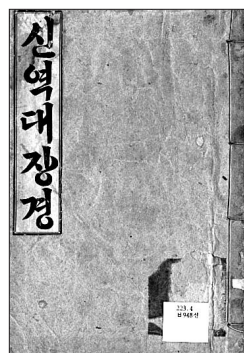 신역대장경
223.4
ㅂ948신